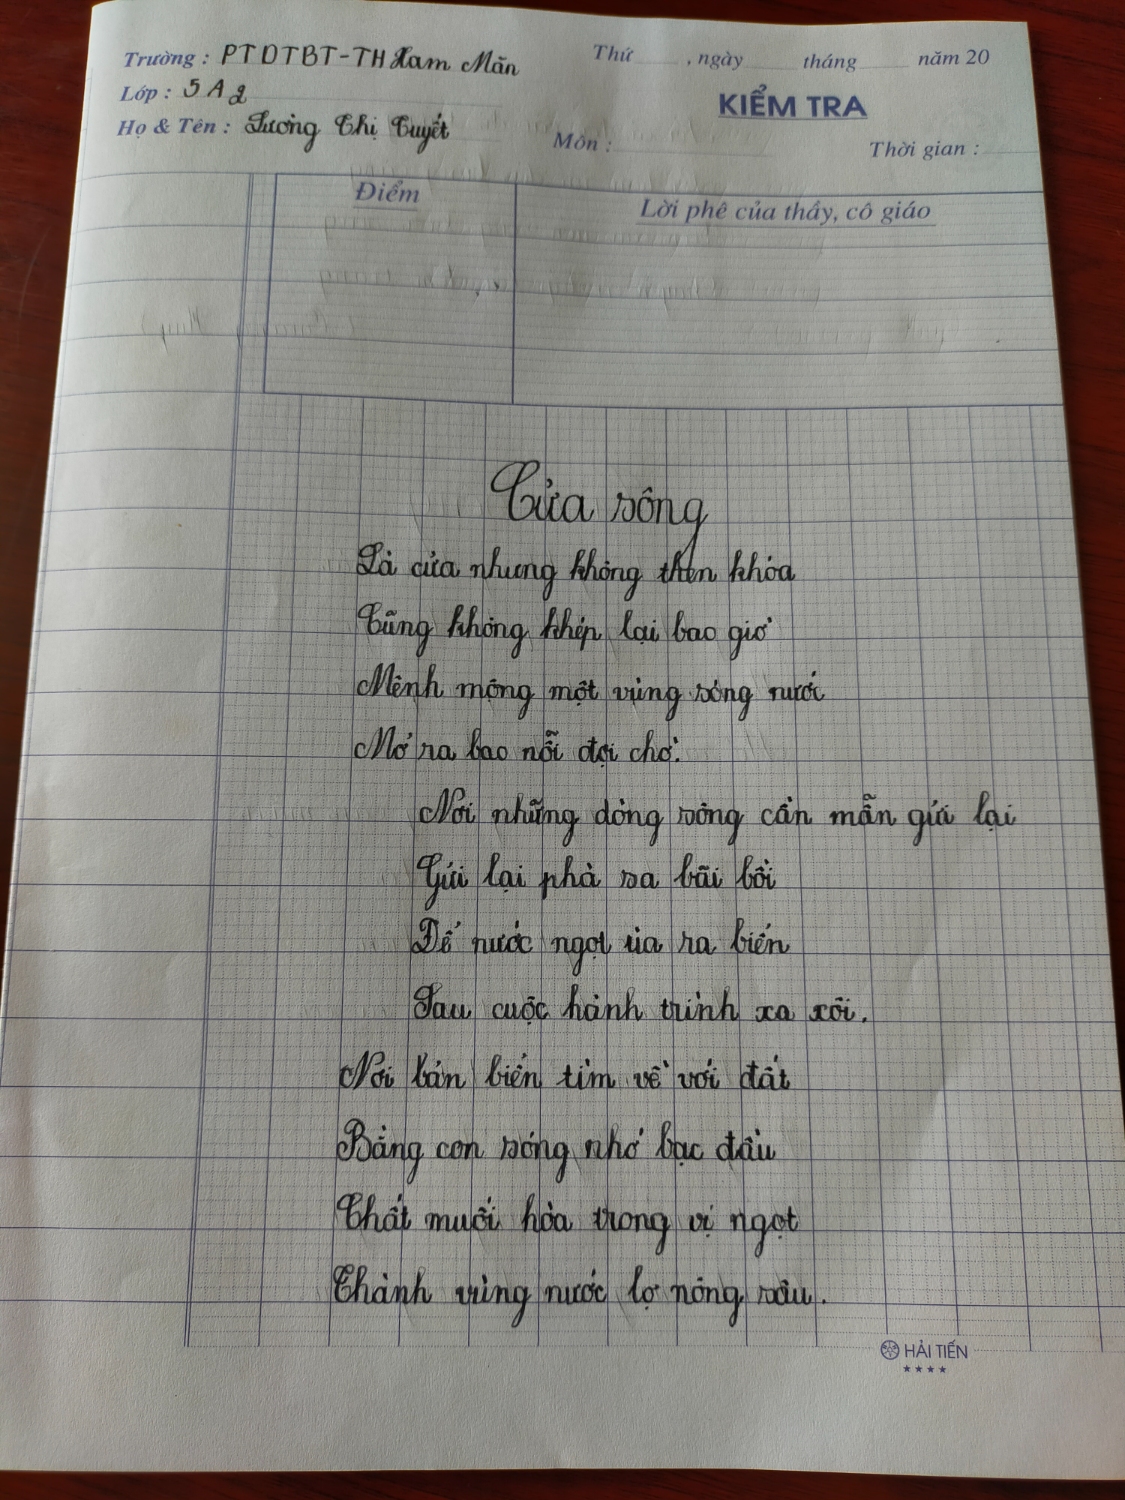 Trường : PTDTBT-TH Nam Măn
Thứ , ngày tháng năm 20
Lớp : 5A2
KIỂM TRA
Họ & Tên : Lường Thị Tuyết
Môn :
Thời gian :
Điểm
Lời phê của thầy, cô giáo
Cửa sông
Là cửa nhưng không then khóa
Cũng không khép lại bao giờ
Mênh mông một vùng sóng nước
Mở ra bao nỗi đợi chờ.
Nơi những dòng sông cần mẫn gửi lại
Gửi lại phù sa bãi bồi
Để nước ngọt ùa ra biển
Sau cuộc hành trình xa xôi.
Nơi biển tìm về với đất
Bằng con sóng nhớ bạc đầu
Chất muối hòa trong vị ngọt
Thành vùng nước lợ nông sâu.
HẢI TIẾN